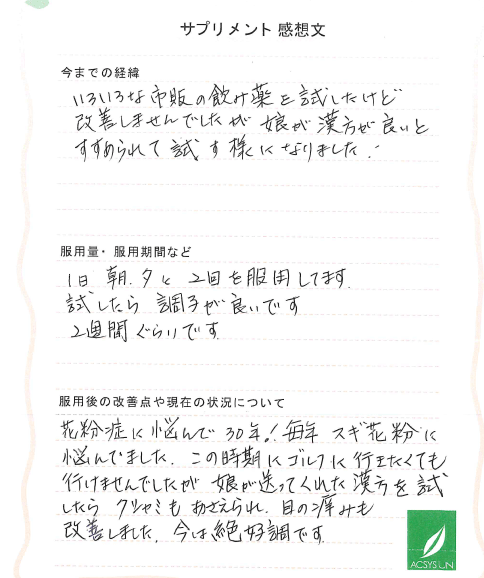 サプリメント 感想文
今までの経緯
いろいろな市販の飲み薬を試したけど
改善しませんでしたが 娘が漢方が良いと
すすめられて試す様になりました.
服用量・服用期間など
1日 朝.夕と 2回を服用してます.
試したら 調子が良いです
2週間ぐらいです.
服用後の改善点や現在の状況について
花粉症に悩んで30年! 毎年 スギ花粉に
悩んでました. この時期にゴルフに行きたくても
行けませんでしたが 娘が送ってくれた漢方を試
したら クシャミもおさえられ. 目の痒みも
改善しました. 今は絶好調です.
ACSYS UN